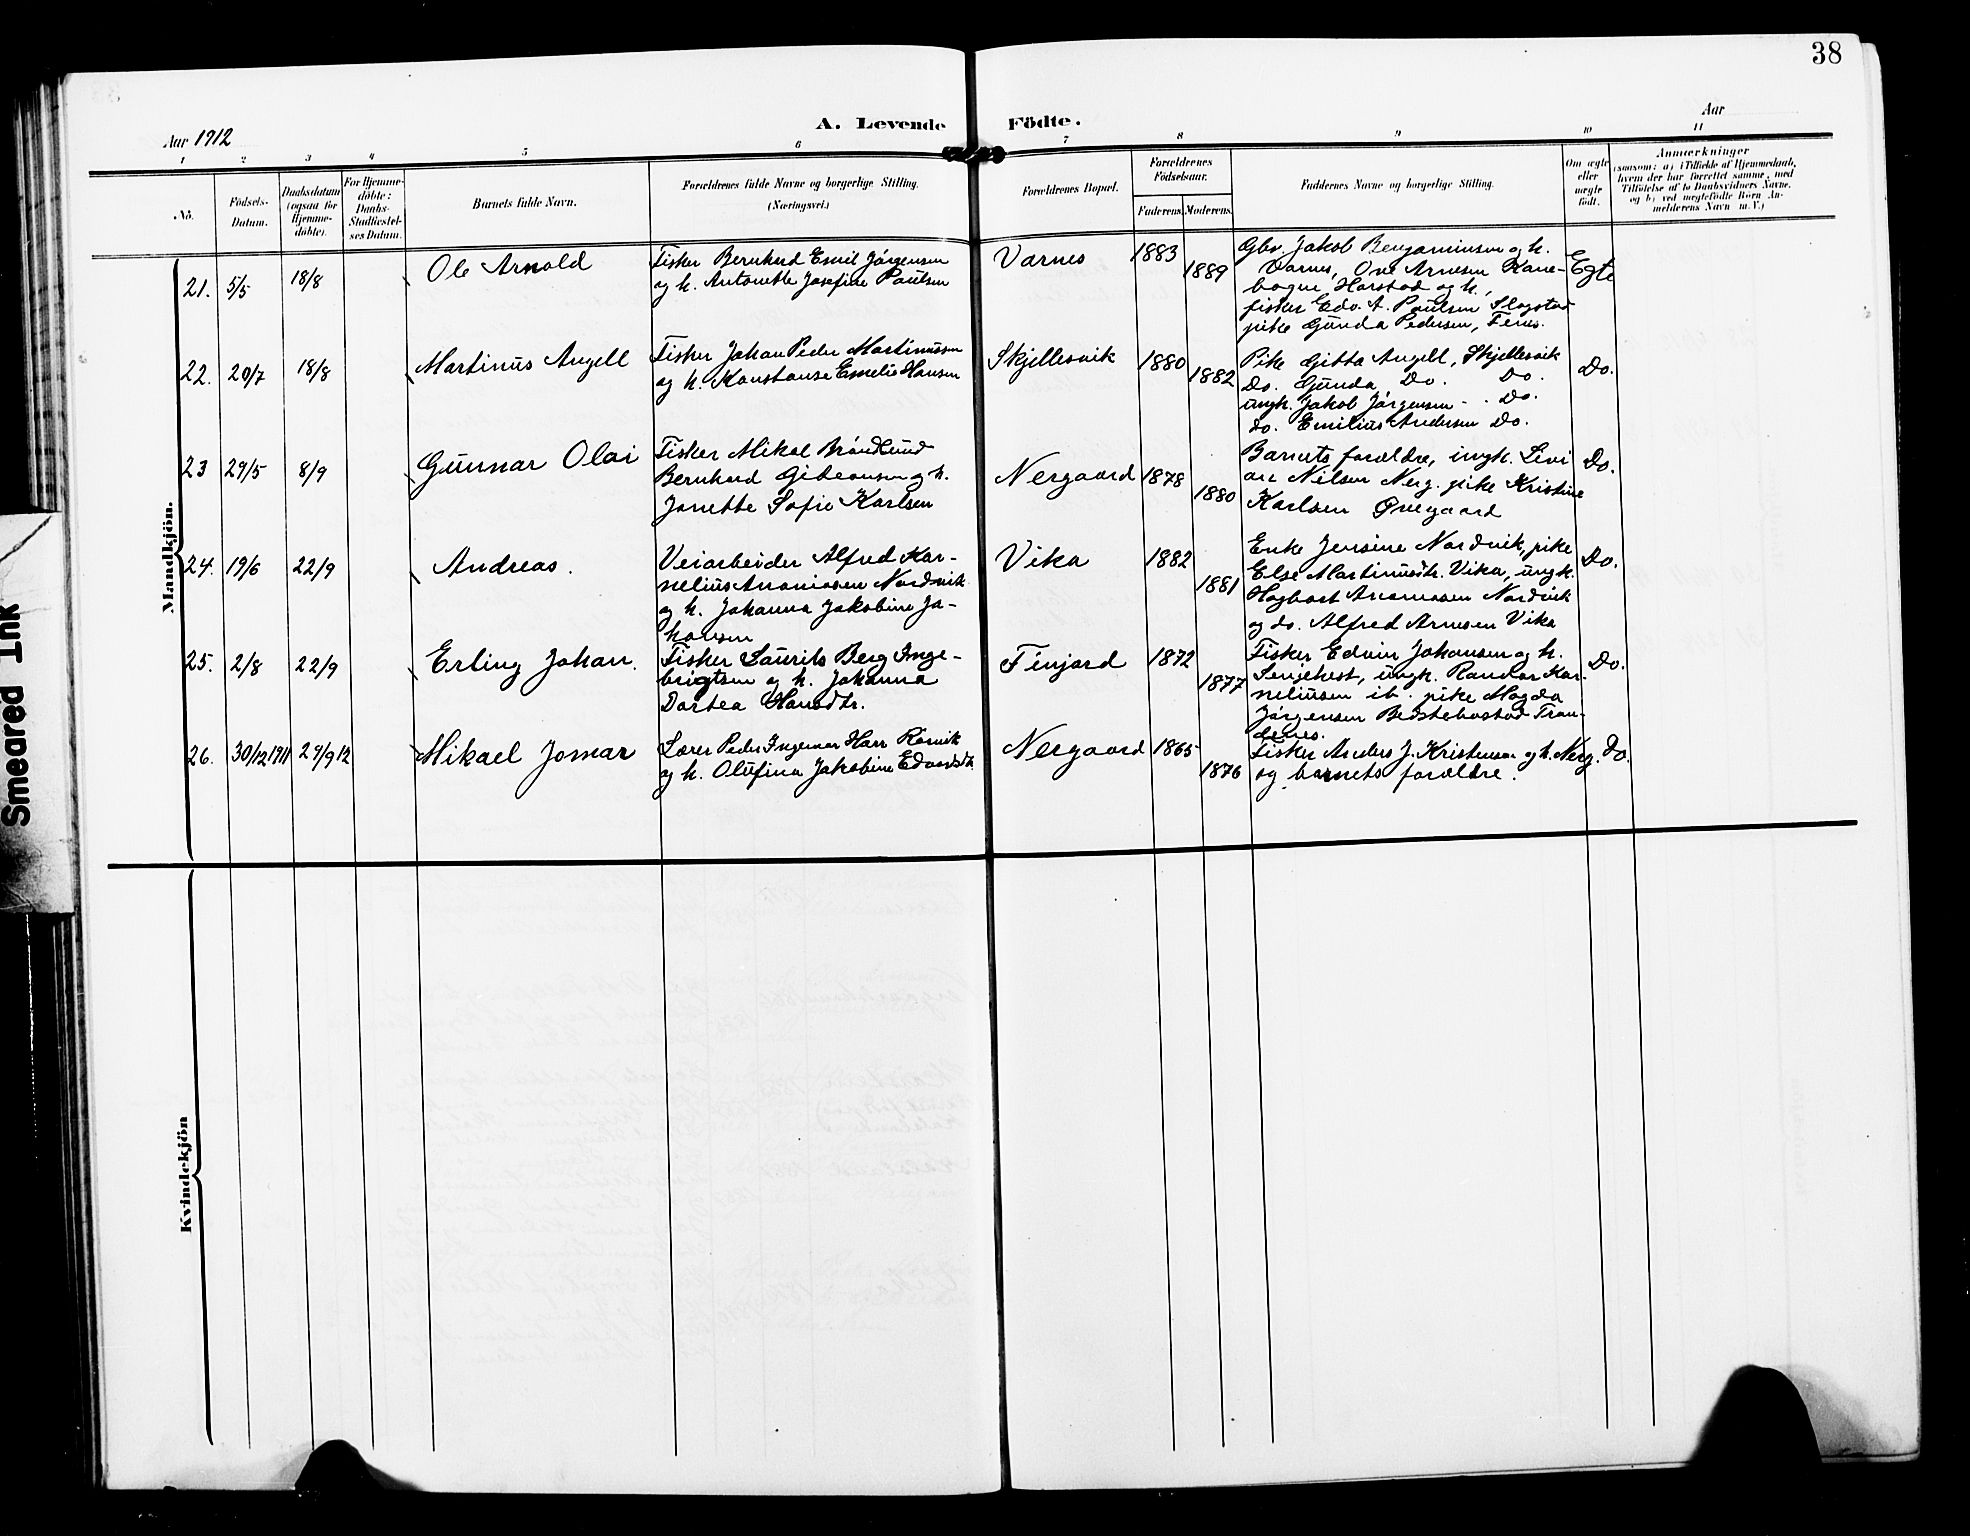 38
Aar 1912
A. Levende Födte.
Aar
1 2 3 4 5 6 7 8 9 10 11
Nö.
Födsels-Datum.
Daabsdatum (ogsaa for Hjemme-döbte).
For Hjemme-döbte: Daabs-Stadfæstel-ses Datum.
Barnets fulde Navn.
Forældrenes fulde Navne og borgerlige Stilling.
(Næringsvei.)
Forældrenes Bopæl.
Forældrenes Födselsaar.
Faderens. Moderens.
Faddernes Navne og borgerlige Stilling.
Om ægte eller uægte født.
Anmærkninger
(saasom: a) i Tilfælde af Hjemmedaab,
hvem der har forrettet samme, med
Tilföielse af to Daabsvidners Navne,
og b) ved uægtefödte Börn An-
melderens Navn m. V.)
Mandkjön.
21. 5/5 18/8 Ole Arnold
Fisker Bernhard Emil Jörgensen
og h. Antonette Josefine Paulsen
Varnes 1883 1889
Gbr. Jakob Benjaminsen og h.
Varnes, Ove Arnesen Kane-
bogen, Harstad og h.,
fisker Edv. A. Paulsen Slagstad
pike Gunda Pedersen, Fenes.
Egte
22. 20/7 18/8 Martinus Angell
Fisker Johan Peder Martinussen
og h. Konstanse Emelie Hansen
Skjellesvik 1880 1882
Pike Gitta Angell, Skjellesvik
Do. Gunda Do. Do.
ungk. Jakob Jörgensen - Do.
Do. Emilius Andersen Do.
Do.
23 29/5 8/9 Gunnar Olai
Fisker Mikal Bröndlund
Bernhard Gideonsen og h.
Janette Sofie Karlsen
Nergaard 1878 1880
Barnets forældre, ungk. Livi
Nilsen Nerg. pike Kristine
Karlsen Øvegaard
Do.
24. 19/6 22/9 Andreas.
Veiarbeider Alfred Kor-
nelius Ananiasen Nordvik
og h. Johanna Jakobine Jo-
hansen
Vika 1882 1881
Enke Jensine Nordvik, pike
Else Martinusdtr. Vika, ungk.
Hagbart Ananiasen Nordvik
og do. Alfred Arnesen Vika
Do.
25. 2/8 22/9 Erling Johan.
Fisker Laurits Berg Inge-
brigtsen og h. Johanna
Dortea Hansdtr.
Finjord 1872 1877
Fisker Edvin Johansen og h.
Senjehest, ungk. Randor Kor-
neliusen ib. pike Magda
Jörgensen Bedstebostad Tran-
denes.
Do.
26. 30/12 1911 29/9 12 Mikael Jomar
Lærer Peder Ingemar Harr Rörvik
og h. Olufina Jakobine Edvardsdtr.
Nergaard 1865 1876
Fisker Anders J. Kristensen og h. Nerg.
og barnets forældre.
Do.
Kvindekjön
Smeared Ink